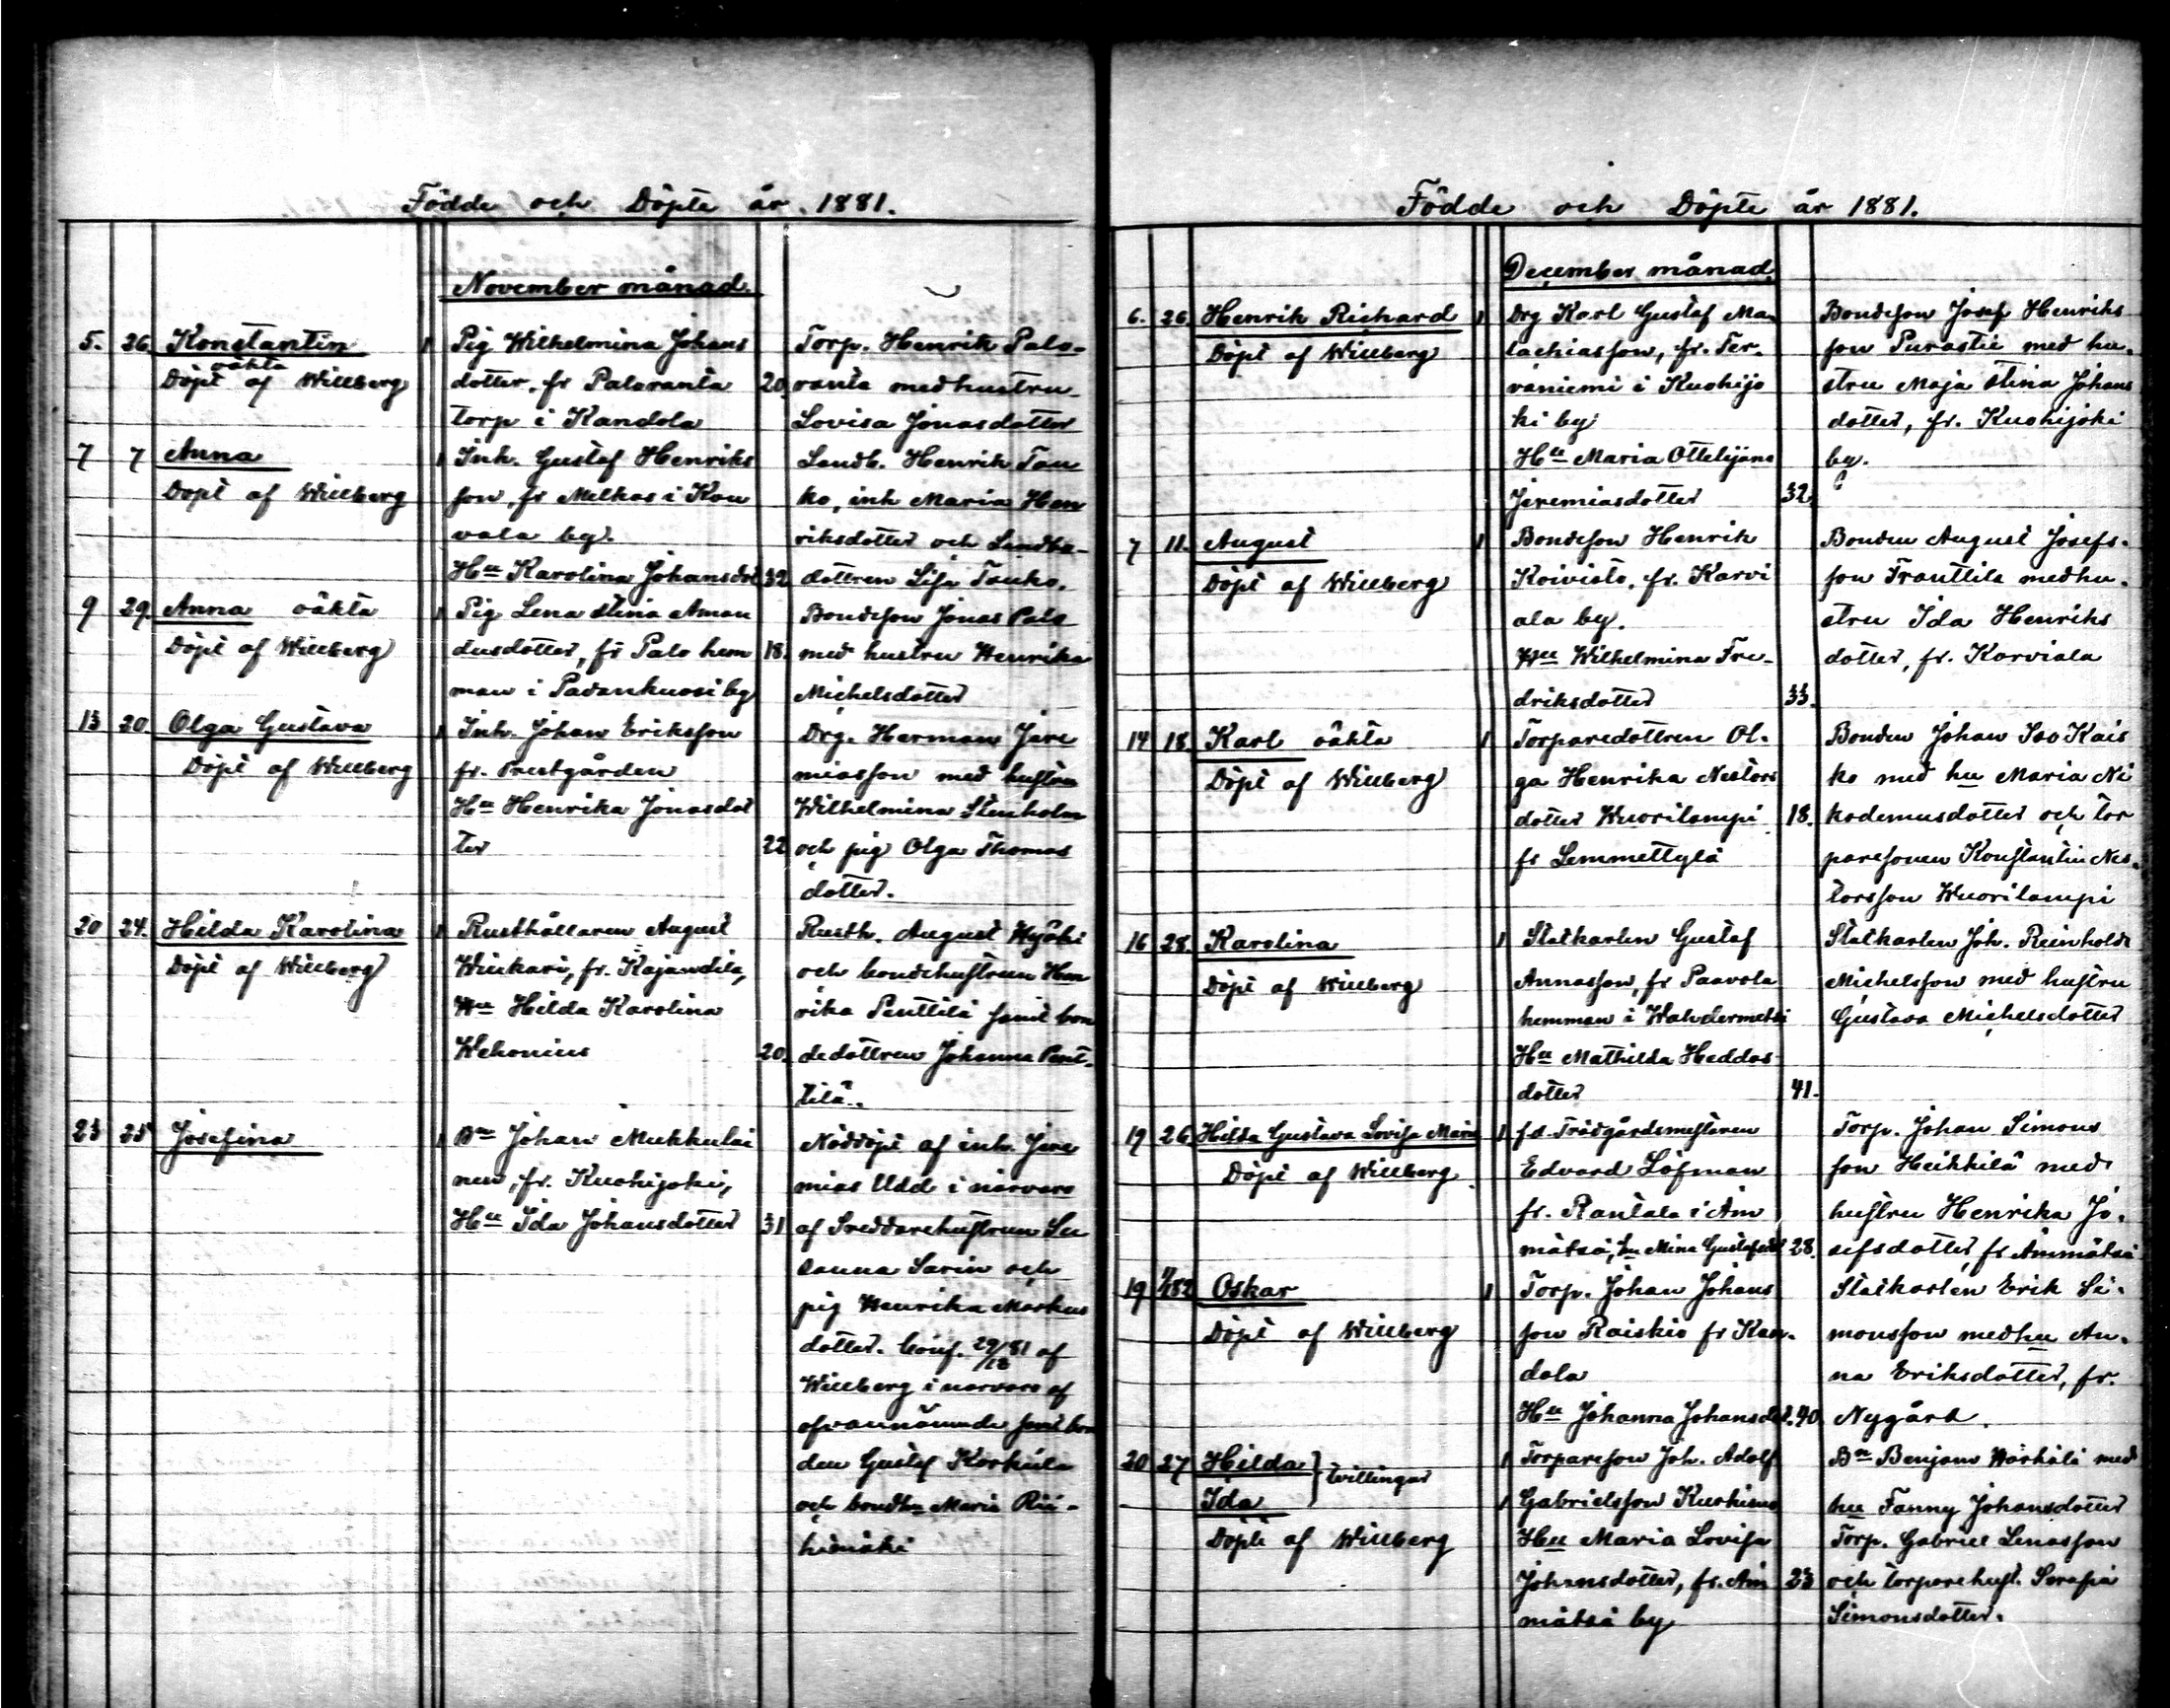 Födde och Döpte år 1881.
November månad.
5. 26. Konstantin
oäkta
Döpt af Willberg
Pig Wilhelmina Johans
dotter, fr Palaranta 20.
torp i Kandola
Torp. Henrik Palo-
ranta med hustru
Lovisa Jonasdotter
7 7 Anna
Döpt af Willberg
Inh. Gustaf Henriks
son, fr Melkas i Kou
vala by.
Hu Karolina Johansdot 32
Landb. Henrik Tau
ko, inh Maria Hen
riksdotter och Landbo-
dottren Lisa Tauko.
9 29. Anna oäkta
Döpt af Willberg
Pig Lena Stina Aman
dusdotter, fr Palo hem 18.
man i Padankuosi by
Bondeson Jonas Palo
med hustru Henrika
Michelsdotter
13 20. Olga Gustava
Döpt af Willberg
Inh. Johan Eriksson
fr. Prestgården
Hu Henrika Jonasdot
ter 22
Drg. Herman Jere
miasson med hustru
Wilhelmina Stenholm
och pig Olga Thomas
dotter.
20 24. Hilda Karolina
Döpt af Willberg
Rusthållaren August
Winkari, fr. Kajandila,
Hu Hilda Karolina
Wehonius 20.
Rusth. August Hyöki
och bondehustrun Hen
rika Penttilä samt bon
dedottren Johanna Pent-
tilä.
23 25 Josefina
Bn Johan Mukkulai
nen, fr. Kuohijoki,
Hu Ida Johansdotter 31
Nöddöpt af inh. Jere
mias Udd i närvaro
af Skreddarehustrun Su
sanna Sarin och
pig Henrika Markus
dotter. Conf. 29/12 81 af
Willberg i närvaro af
ofvannämnde samt bon
den Gustaf Korkula
och bondhu Maria Rii-
himäki
Födde och Döpte år 1881.
December månad.
6. 26. Henrik Richard
Döpt af Willberg
Drg Karl Gustaf Ma-
lachiasson, fr. Ter-
vaniemi i Kuohijo
ki by
Hu Maria Ottelijana
Jeremiasdotter 32.
Bondeson Josef Henriks
son Purastie med hu-
stru Maja Stina Johans
dotter, fr. Kuohijoki
by.
7 11. August
Döpt af Willberg
Bondeson Henrik
Koivisto, fr. Karvi
ala by.
Hu Wilhelmina Fre-
driksdotter 33.
Bonden August Josefs-
son Franttila med hu-
stru Ida Henriks
dotter, fr. Karviala
14 18. Karl oäkta
Döpt af Willberg
Torparedottren Ol-
ga Henrika Nestors
dotter Wuorilampi 18.
fr Lemmettylä
Bonden Johan Iso Kais
ko med hu Maria Ni
kodemusdotter och tor
paresonen Konstantin Nes-
torsson Wuorilampi
16 28. Karolina
Döpt af Willberg
Statkarlen Gustaf
Annasson, fr Paavola
hemman i Wahdermetsi
Hu Mathilda Heddas
dotter 41.
Statkarlen Joh. Reinhold
Michelsson med hustru
Gustava Michelsdotter
19 26 Hilda Gustava Lovisa Maria
Döpt af Willberg.
fd. Trädgårdsmästaren
Edvard Löfman
fr. Rantala i Äm
mätsä, hu Mina Gustafsdot 28.
Torp. Johan Simons
son Heikkilä med
hustru Henrika Jo-
sefsdotter, fr Ämmätsä
19 1/1 82 Oskar
Döpt af Willberg
Torp. Johan Johans
son Raiskio fr Kan-
dola
Hu Johanna Johansdot. 40
Statkarlen Erik Si-
monsson med hu An-
na Eriksdotter, fr.
Nygård.
20 27 Hilda } tvillingar
Ida
Döpte af Willberg
Torpareson Joh. Adolf
Gabrielsson Kuohisma
Hu Maria Lovisa
Johansdotter, fr. Äm 23
mätsä by
Bn Benjam Härkälä med
hu Fanny Johansdotter
Torp. Gabriel Lenasson
och torparehust. Serafia
Simonsdotter.